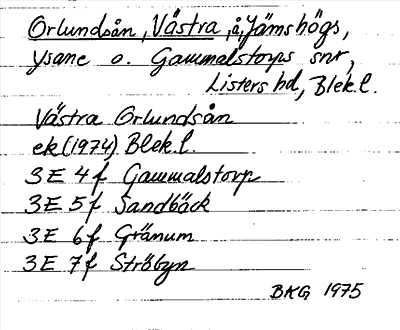 Orlundsån, Västra, å, Jämshögs,
Ysane o. Gammalstorps snr,
Listers hd, Blek.l.
Västra Orlundsån
ek (1974) Blek.l.
3E 4f Gammalstorp
3E 5f Sandbäck
3E 6f Gränum
3E 7f Ströbyn
BKG 1975